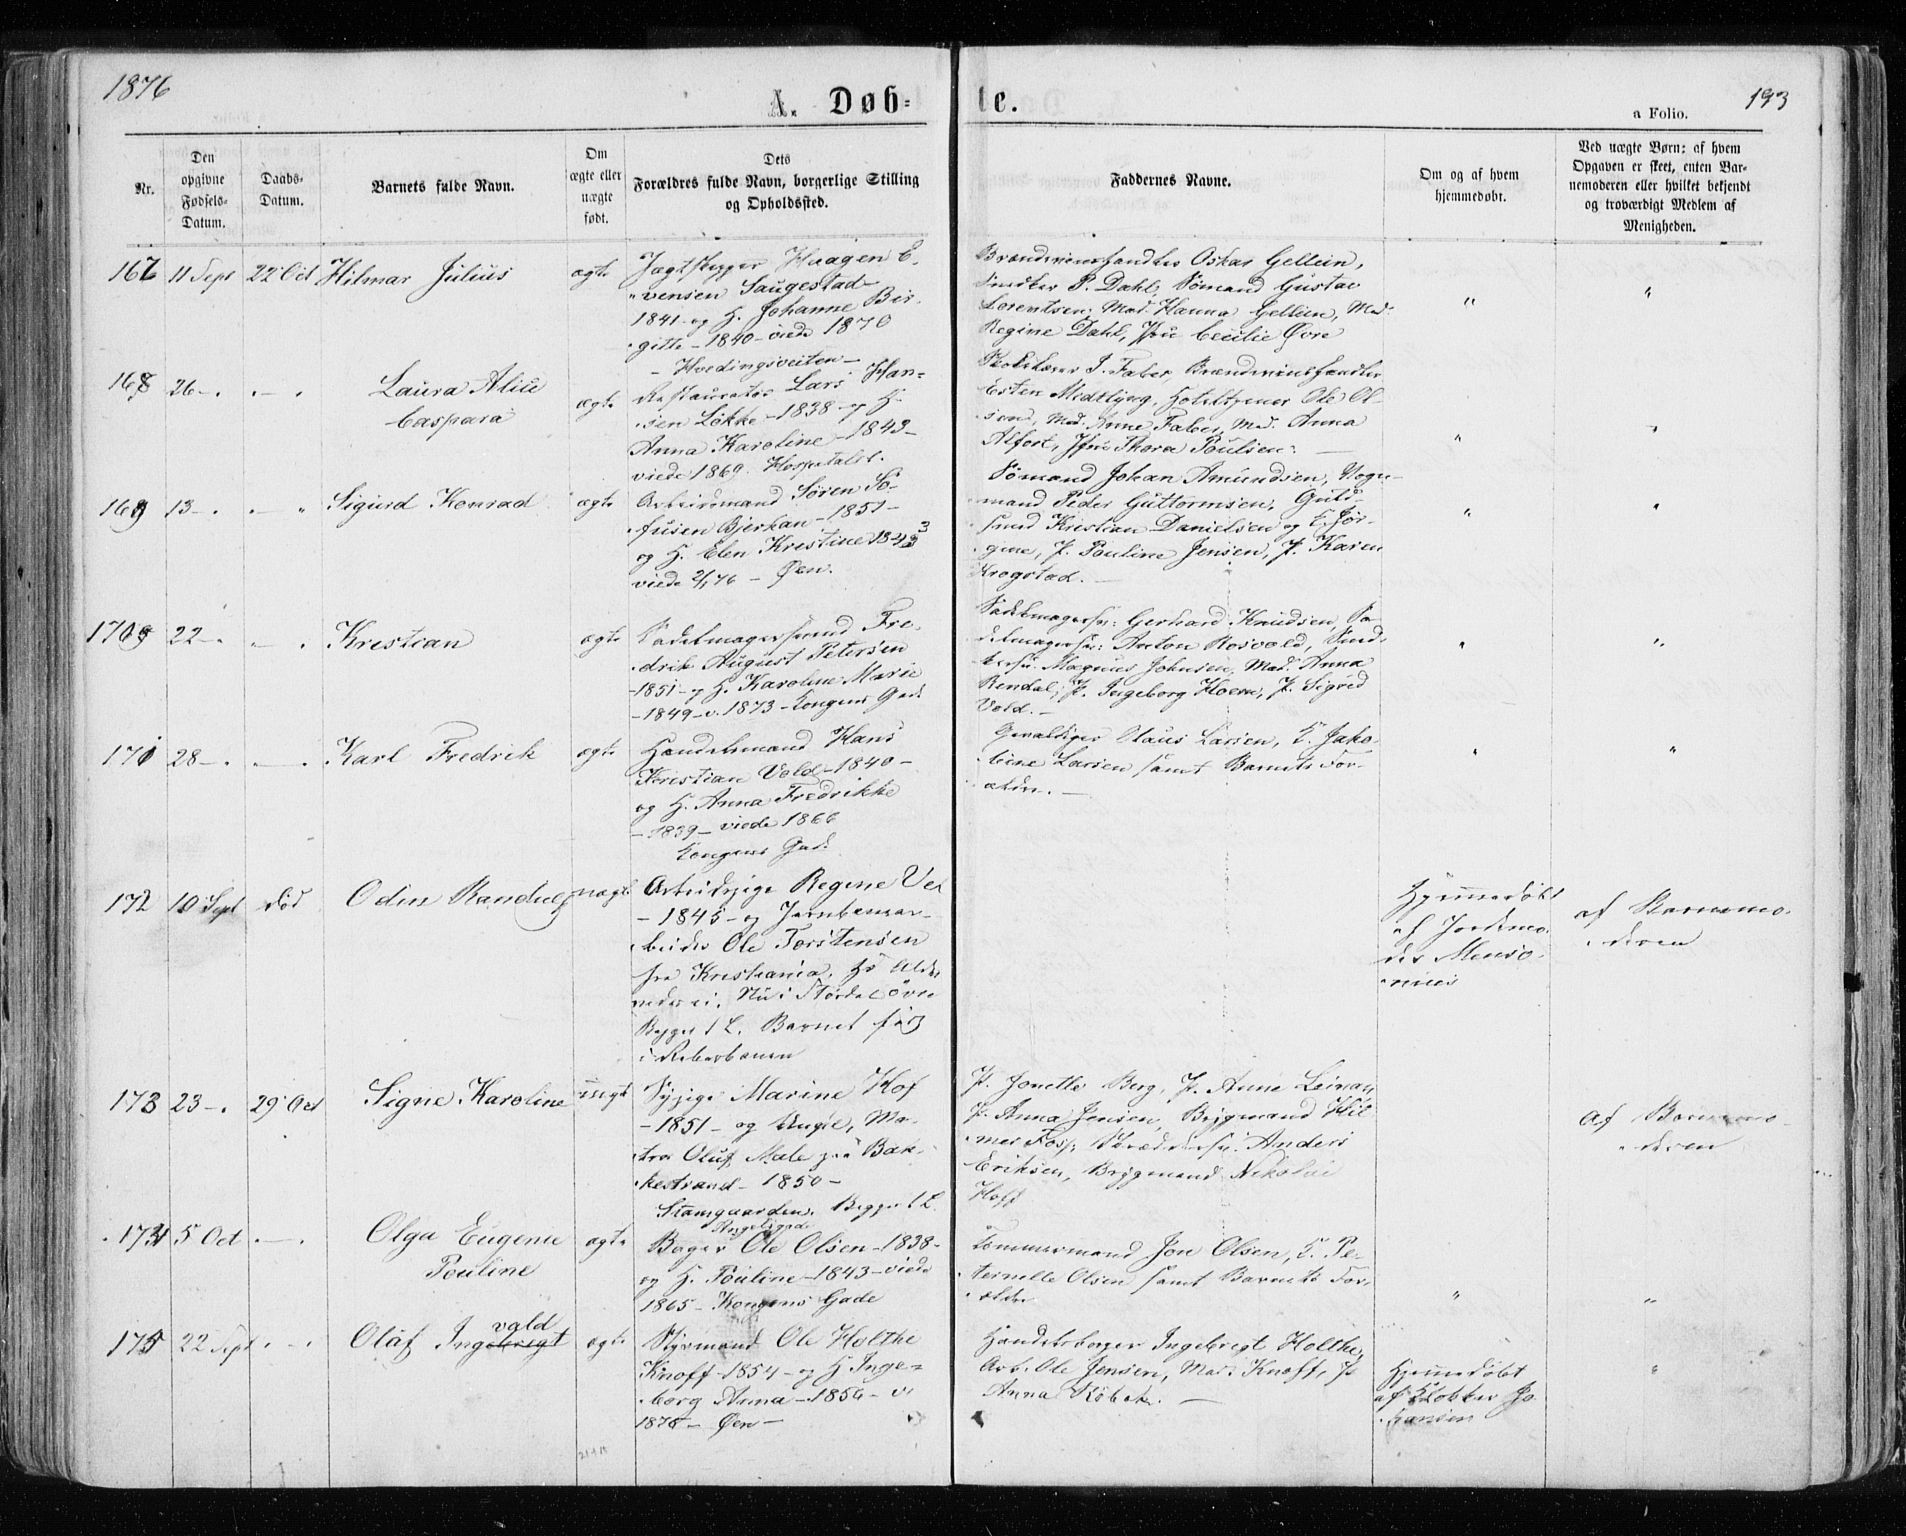 1876
A. Døb-
te.
193
a Folio.
Nr.
Den
opgivne
Fødsels-
Datum.
Daabs-
Datum.
Barnets fulde Navn.
Om
ægte eller
uægte
født.
Dets
Forældres fulde Navn, borgerlige Stilling
og Opholdssted.
Faddernes Navne.
Om og af hvem
hjemmedøbt.
Ved uægte Børn: af hvem
Opgaven er skeet, enten Bar-
nemoderen eller hvilket bekjendt
og troværdigt Medlem af
Menigheden.
167 11 Sept 22 Oct Hilmar Julius ægte
Jagtskipper Haagen E-
vensen Saugestad
1841 og H. Johanne Bir-
gitte - 1840 - viede 1870
- Hvedingsveiten -
Brændeviinshandler Oskar Gellein,
Snedker P. Dahl, Sømand Gustav
Lorentsen, Mad. Hanna Gellein, Mad.
Regine Dahl, Jfru Cecilie Øvre
" "
168 26 - " - " Laura Alice
Caspara
ægte
Restauratør Lars Han-
sen Løkke - 1838 - og H.
Anna Karoline - 1843 -
viede 1869. Hospitalet.
J. Faber, Brændeviinshandler
Esten Midtlyng, Ole Ol-
sen, Mad. Anne Faber, Mad. Anna
Alfort, Jfru Thora Poulsen. -
" "
169 13 - " - " Sigurd Konrad ægte
Arbeidsmand Søren So-
fusen Bjerkan - 1851 -
og H. Elen Kristine 1843
viede 2/1 76 - Øen.
Sømand Johan Amundsen, Vogn-
mand Peder Guttormsen, Guld-
smed Kristian Danielsen og H. Jør-
gine, P. Pouline Jensen, P. Karen
Krogstad. -
" "
170 22 - " - " Kristian ægte
Sadelmagersvend Fre-
drik August Petersen
- 1851 - og H. Karoline Marie
- 1849 - v. 1873 - Kongens Gade
Sadelmagersv: Gerhard Knudsen, Sa-
delmagersv: Anton Rosvold, Smed-
Magnus Johnsen, Mad. Anna
Rendal, P. Ingeborg Hoem, P. Sigrid
Vold. -
" "
171 28 - " - " Karl Fredrik ægte
Handelsmand Hans
Kristian Vold - 1840 -
og H. Anna Fredrikke
- 1839 - viede 1866
Kongens Gade
Gevaldiger Claus Larsen, H. Jako-
bine Larsen samt Barnets For-
ældre. -
" "
172 10 Sept død Odin Randulf uægte
Arbeidspige Regine Vei
- 1845 - og Jernbanear-
beider Ole Torstensen
fra Kristiania, hs Alder
vides ei. Nu i Størdal øvre
Begges 1 L. Barnet født
i Reberbanen
Hjemmedøbt
af Jordmo-
der
af Barnemo-
deren
173 23 - " 29 Oct Signe Karoline uægte
Sypige Marine Hof
- 1851 - og Ungk., Ma-
tros Oluf Male paa Bak-
kestrand - 1850 -
Begges 1 L.
P. Jonette Berg, P. Anne Leinan,
P. Anna Jensen, Brygmand Hil-
mar Foss, Skræddersv: Anders
Eriksen, Brygmand Nikolai
Hoff
Af Barnemo-
deren
174 5 Oct " - " Olga Eugenie
Pouline
ægte
Bager Ole Olsen - 1838 -
og H. Pouline - 1843 - viede
1865 - Kongens Gade
Tømmermand Jon Olsen, H. Pe-
ternelle Olsen samt Barnets For-
ældre
" "
175 22 Sept " - " Olaf Ingebrigt
vald
ægte
Styrmand Ole Holthe
Knoff - 1854 - og H. Inge-
borg Anna - 1856 - v.
1876 - Øen -
Handelsborger Ingebrigt Holthe,
Arb. Ole Jensen, Mad. Knoff, P.
Anna Købek. -
Hjemmedøbt
af Klokker Jo-
hansen
"